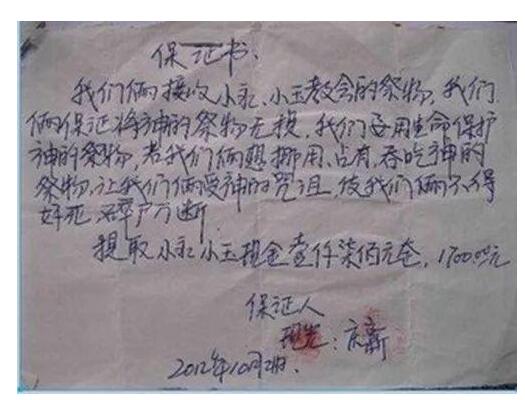 保证书
我们俩接收小永、小玉教会的祭物,我们
俩保证将神的祭物无损,我们要用生命保护
神的祭物,若我们俩想挪用、占有、吞吃神的
祭物,让我们俩受神的咒诅,使我们俩不得
好死
提取小永小玉现金壹仟柒佰元全,1700.00元
保证人
2012年10月2日